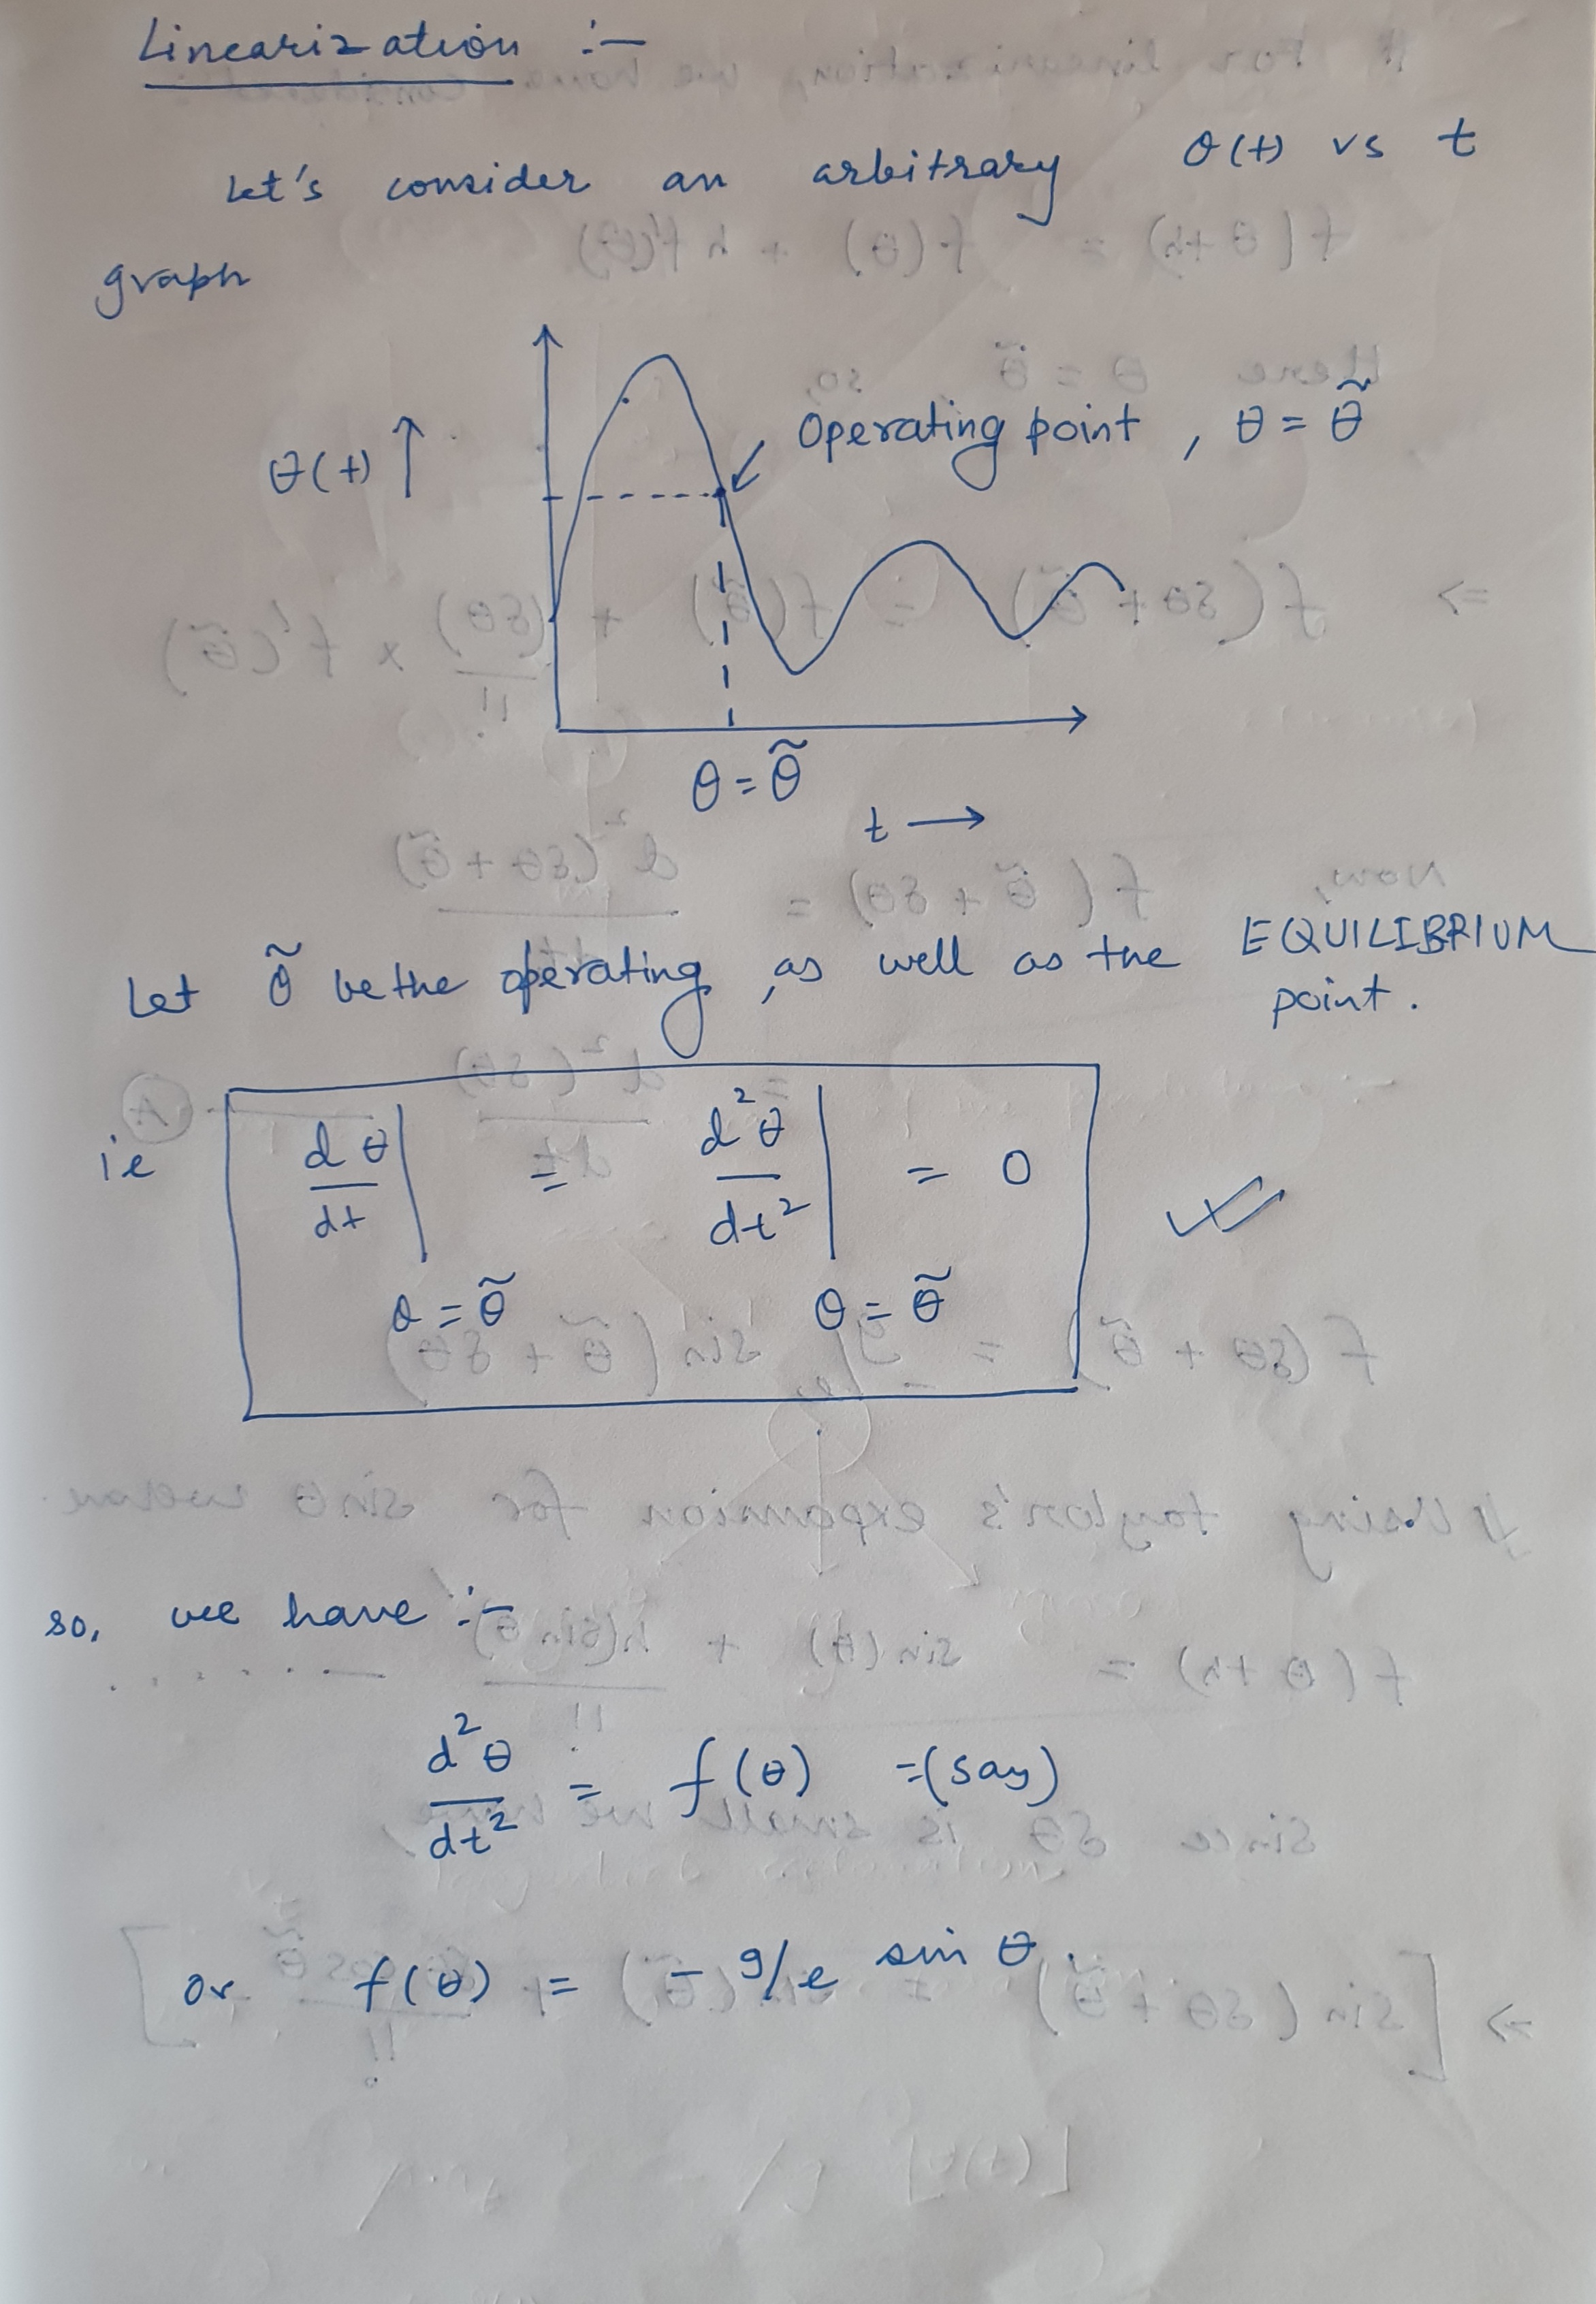 Linearization :-
Let's consider an arbitrary θ(t) vs t
graph
θ(t) ↑
Operating point, θ = θ̃
θ = θ̃
t →
Let θ̃ be the operating, as well as the EQUILIBRIUM
point.
ie dθ/dt | = d²θ/dt² | = 0
θ = θ̃ θ = θ̃
so, we have :-
d²θ/dt² = f(θ) =(say)
or f(θ) = - g/l sin θ.